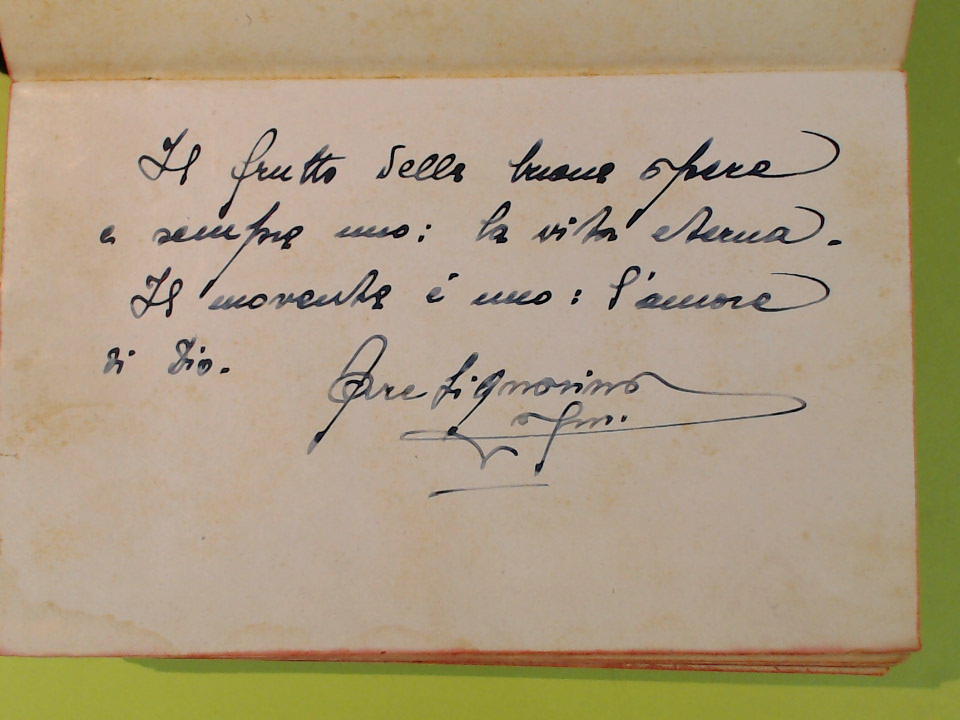 Il frutto della buona opera
e sempre uno: la vita eterna.
Il movente è uno: l'amore
di Dio.
Signorino
ofm.